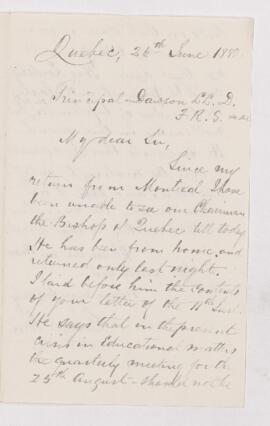 Quebec, 26th June 1880
Principal Dawson LL. D.
F. R. S.
My dear Sir,
Since my
return from Montreal I have
been unable to see our Chairman
the Bishop of Quebec till today
He has been from home, and
returned only last night.
I laid before him the contents
of your letter of the 11th Inst.
He says that in the present
crisis in Educational matters
the quarterly meeting for the
25th August - should not be